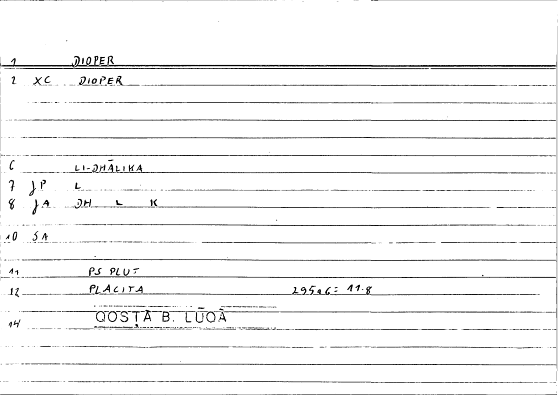 1 DIOPER
2 XC DIOPER
6 LI-DHĀLIKA
7 JP L
8 JA DH L K
10 SA
11 PS PLUT
12 PLACITA 295a6= 11.8
14 QOSṬĀ B. LŪQĀ